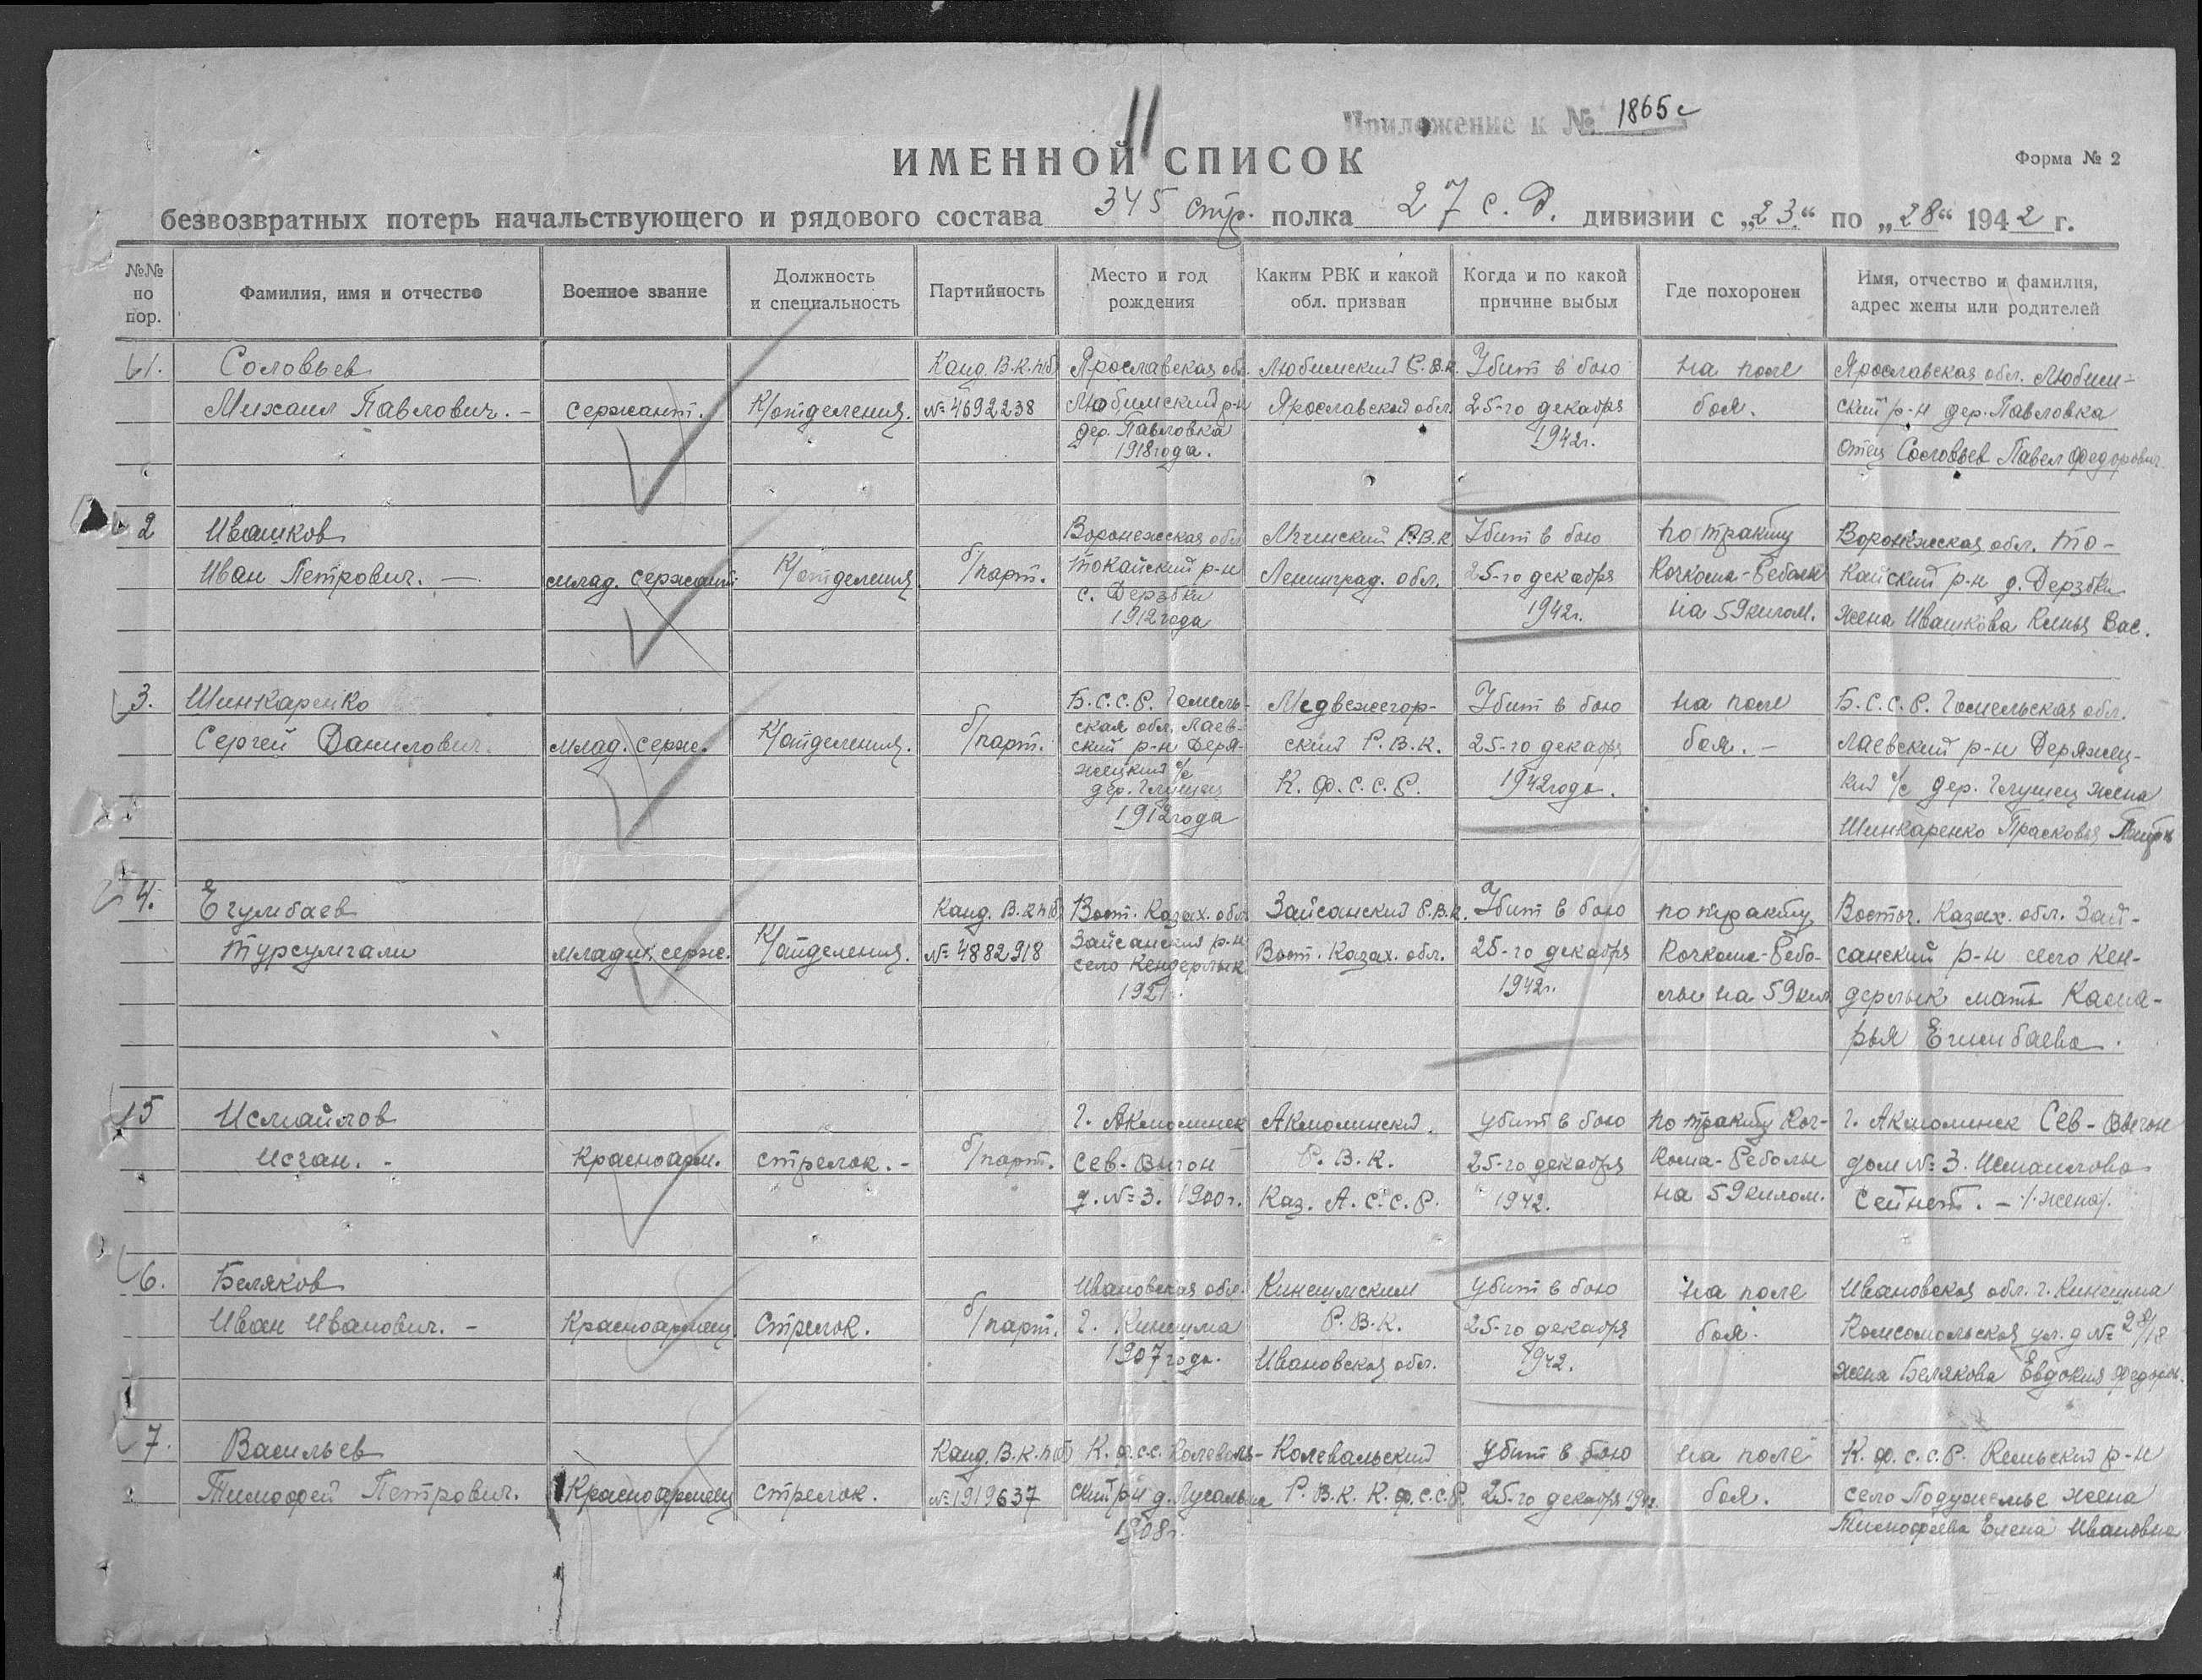 11
Приложение к № 1865с
ИМЕННОЙ СПИСОК
Форма № 2
безвозвратных потерь начальствующего и рядового состава 345 стр. полка 27 с. д. дивизии с „23“ по „28“ 1942 г.
№№ по пор.
Фамилия, имя и отчество
Военное звание
Должность и специальность
Партийность
Место и год рождения
Каким РВК и какой обл. призван
Когда и по какой причине выбыл
Где похоронен
Имя, отчество и фамилия, адрес жены или родителей
1. Соловьев Канд. В.К.П/б Ярославская обл. Любимский Р.В.К. Убит в бою на поле Ярославская обл. Любим-
Михаил Павлович. – сержант. К/отделения. № 4692238 Любимский р-н Ярославской обл. 25-го декабря боя. ский р-н дер. Павловка
дер. Павловка 1942г. отец Соловьев Павел Федорович
1918 года.
2 Ивашков Воронежская обл. Р.В.К. Убит в бою по тракту Воронежская обл. То-
Иван Петрович. – млад. сержант К/отделения б/парт. Токайский р-н Ленинград. обл. 25-го декабря Кочкома-Реболы кайский р-н д. Дерзбки
с. Дерзбки 1942г. на 59 килом. жена Ивашкова Вас.
1912 года
3. Шинкаренко Б.С.С.Р. Гомель- Медвежегор- Убит в бою на поле Б.С.С.Р. Гомельская обл.
Сергей Данилович. млад. серж. К/отделения. б/парт. ская обл. Лаев- ский Р.В.К. 25-го декабря боя. – Лаевский р-н Деряжец-
ский р-н Деря-
жецкий с/с К.Ф.С.С.Р. 1942 года. кий с/с дер. Глушец жена
дер. Глушец
1912 года Шинкаренко Прасковья
4. Егумбаев Канд. В.К.П/б Вост. Казах. обл. Зайсанский Р.В.К. Убит в бою по тракту Восточ. Казах. обл. Зай-
Турсумгали младш. серж. К/отделения. № 4882918 Зайсанский р-н Вост. Казах. обл. 25-го декабря Кочкома-Ребо- санский р-н село Кен-
село Кендерлык 1942г. лы на 59 кил. дерлык мать Касма-
1921г. рья
5 Исмайлов г. Акмолинск Акмолинский. убит в бою по тракту Коч- г. Акмолинск Сев-Выгон
Исган. - Красноарм. стрелок. - б/парт. Сев-Выгон Р.В.К. 25-го декабря кома-Реболы дом № 3. Исмаилова
д. № 3. 1900г. Каз. А.С.С.Р. 1942. на 59 килом. – /.жена/.
6. Беляков Ивановская обл. Кинешмским убит в бою на поле Ивановская обл. г. Кинешма
Иван Иванович. – Красноармеец Стрелок. б/парт. г. Кинешма Р.В.К. 25-го декабря боя. Комсомольская ул. д № 28/18
1907 года. Ивановской обл. 1942. жена Белякова Евдокия Федоров.
7. Васильев Канд. В.К.П/б К.Ф.С.С. Калеваль- Калевальский убит в бою на поле К.Ф.С.С.Р. Кемьский р-н
Тимофей Петрович. Красноармеец стрелок. № 1919637 ский рн д. Р.В.К. К.Ф.С.С.Р. 25-го декабря 1942. боя. село Подужемье жена
1908г. Тимофеева Елена Ивановна